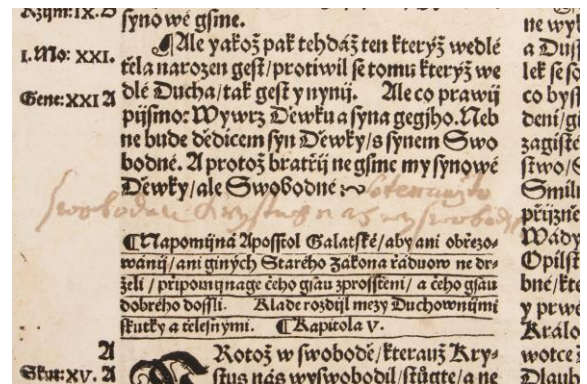 Rzijm: IX. B
synowé gsme.
I. Mo: XXI.
¶Ale yakož pak tehdáž ten kterýž wedlé
těla narozen gest/protiwil se tomu kterýž we
Gene: XXI A
dlé Ducha/tak gest y nynij. Ale co prawij
pijsmo: Wywrz Děwku a syna gegijho. Neb
ne bude dědicem syn Děwky/s synem Swo
bodné. A protož bratřij negsme my synowé
Děwky/ale Swobodné
swobodau
¶Napomijná Aposstol Galatské/aby ani obřezo-
wánij/ani giných Starého Zákona řáduow ne dr-
želi/připomijnage čeho gsau zprosstěni/a čeho gsau
dobrého dossli. Klade rozdijl mezy Duchownijmi
skutky a tělesnými. ¶Kapitola V.
A
Skut: XV. A
Rotož w swobodě/kterauž Kry-
stus nás wyswobodil/stůgte/a ne
ne wy
a Du
lek se
co by
deni/
zagisté
stwo/
Smil
přijzně
Wády
Opilst
bné/kte
y prwé
Králo
wotce
Dlauh